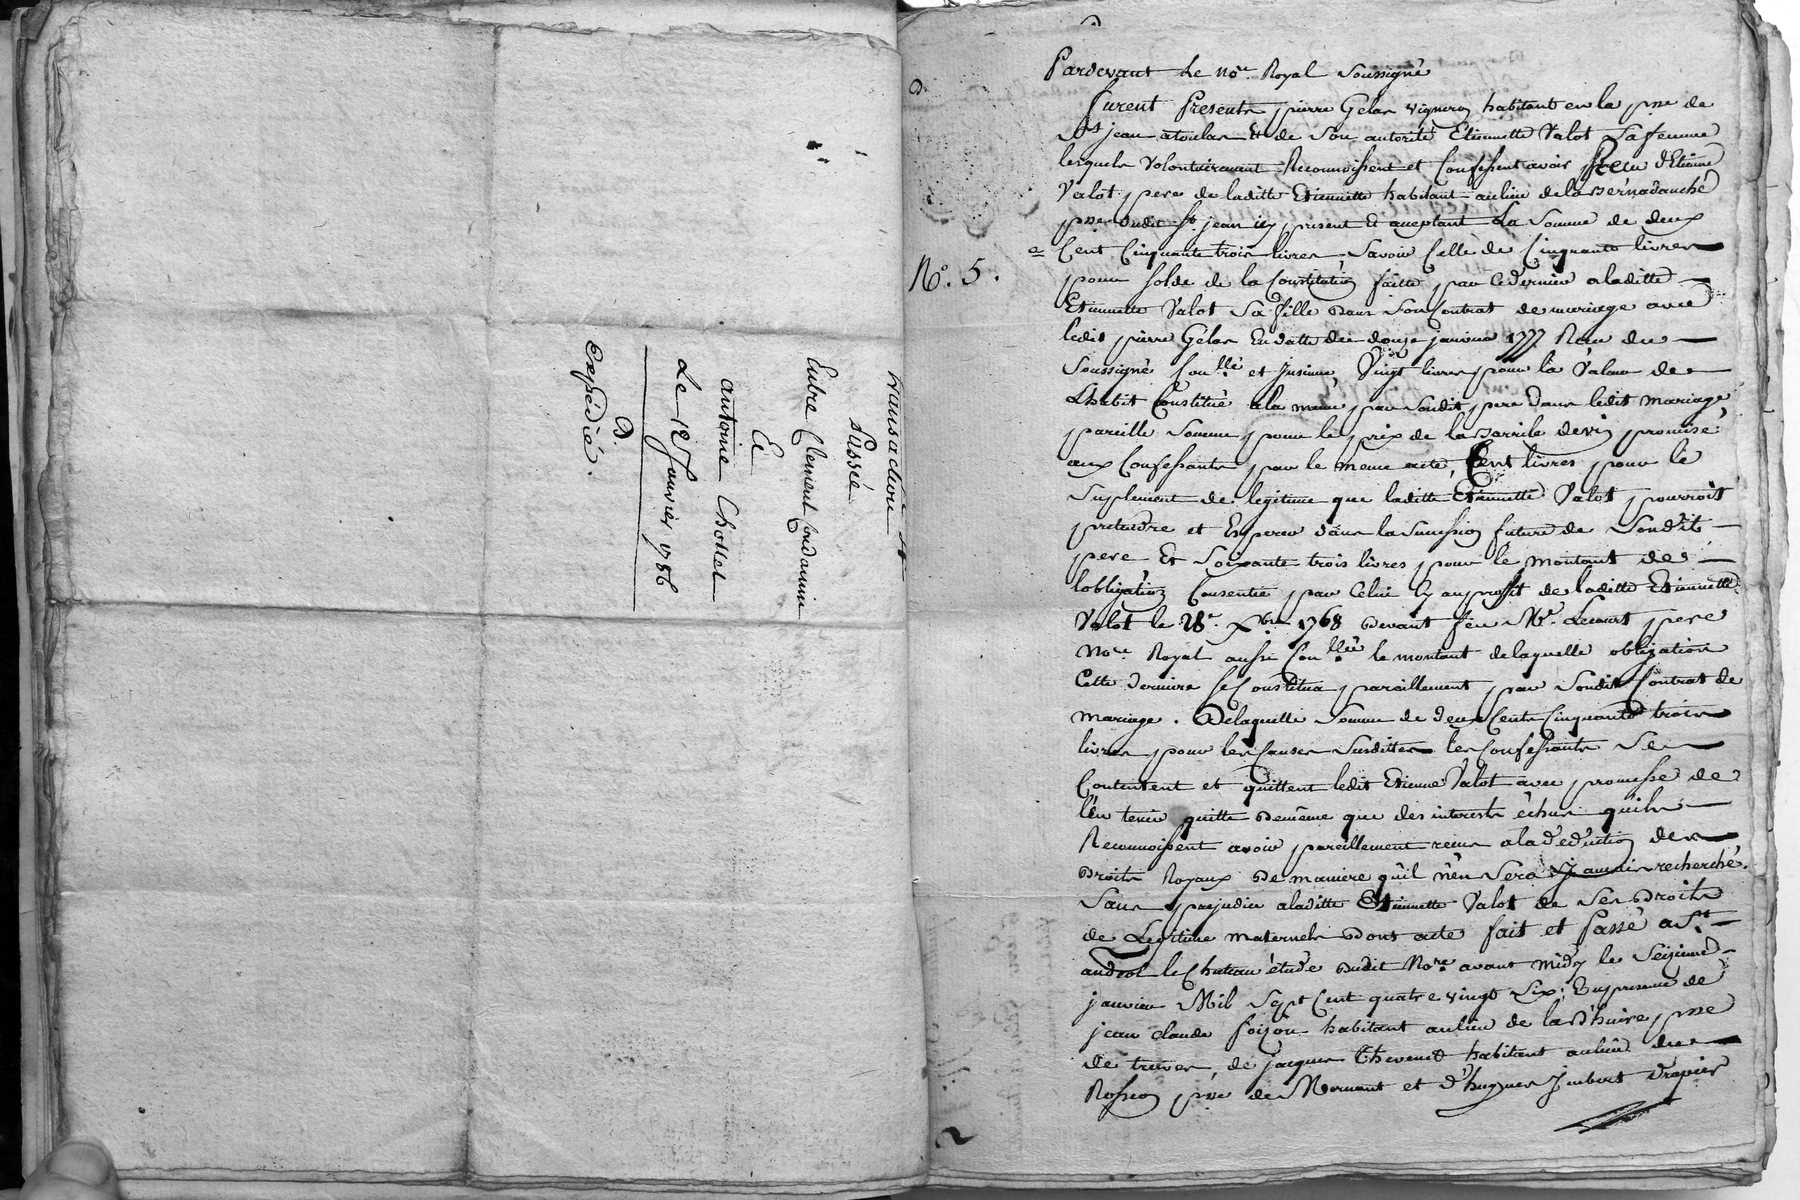 transaction
Passée
Entre Clement fondamin
Et
antoine Chollet
Le 12 Janvier 1786
D.
Expédié.
D.
Pardevant Le no.re Royal Soussigné
furent Presents pierre Gelas vigneron habitant en la psse de
St jean atoulas Et de son autorité Etiennette Valot Sa femme
lesquels Volontairement Reconnoissent et Confessent avoir Reçu d'Etienne
Valot pere de laditte Etiennette habitant au lieu de la Bernadanche
psse dudit St. jean icy present Et acceptant La Somme de deux
Cent Cinquante trois livres Savoir Celle de Cinquante livres
N.o 5.
pour Solde de la Constitution faitte par Ce dernier a laditte
Etiennette Valot Sa fille dans Son Contrat de mariage avec
ledit pierre Gelas En datte du douze janvier 1777 Recu du
Soussigné Con.llé et Insinué, Vingt livres pour la Valeur de
L'habit Constitué a la meme par Sondit pere dans ledit mariage
pareille Somme pour le prix de la Barrile de vin promise
aux Confessants par le meme acte, Cent livres pour le
Suplement de legitime que laditte Etiennette Valot pourroit
pretendre et Esperer dans la Succession future de Sondit
pere Et Soixante trois livres pour le montant de
l'obligation Consentie par Celui Cy au proffit de laditte Etiennette
Valot le 28e. Xbre 1768 devant feu Me. Lecourt pere
No.re Royal aussi Con.llée le montant de laquelle obligation
Cette derniere Se Constitua pareillement par Sondit Contrat de
mariage. De laquelle Somme de deux Cents Cinquante trois
livres pour les Causes Susdittes les Confessants Se
Contentent et quittent ledit Etienne Valot avec promesse de
l'En tenir quitte de même que des interests échus qu'ils
Reconnoissent avoir pareillement recus a la déduction des
Droits Royaux De maniere qu'il n'en Sera Jamais recherché.
Sans prejudice a laditte Etiennette Valot de Ses Droits
de Legitime maternels Dont acte fait et Passé a St.
andéol le Chateau étude dudit No.re avant midy le Seizieme
janvier Mil Sept Cent quatre vingt Six: En presence de
jean Claude foizon habitant au lieu de la D'huire psse
de treves, de jacques Thevenet habitant au lieu du
Rossion psse de Mornant et d'hugues Imbert Drapier